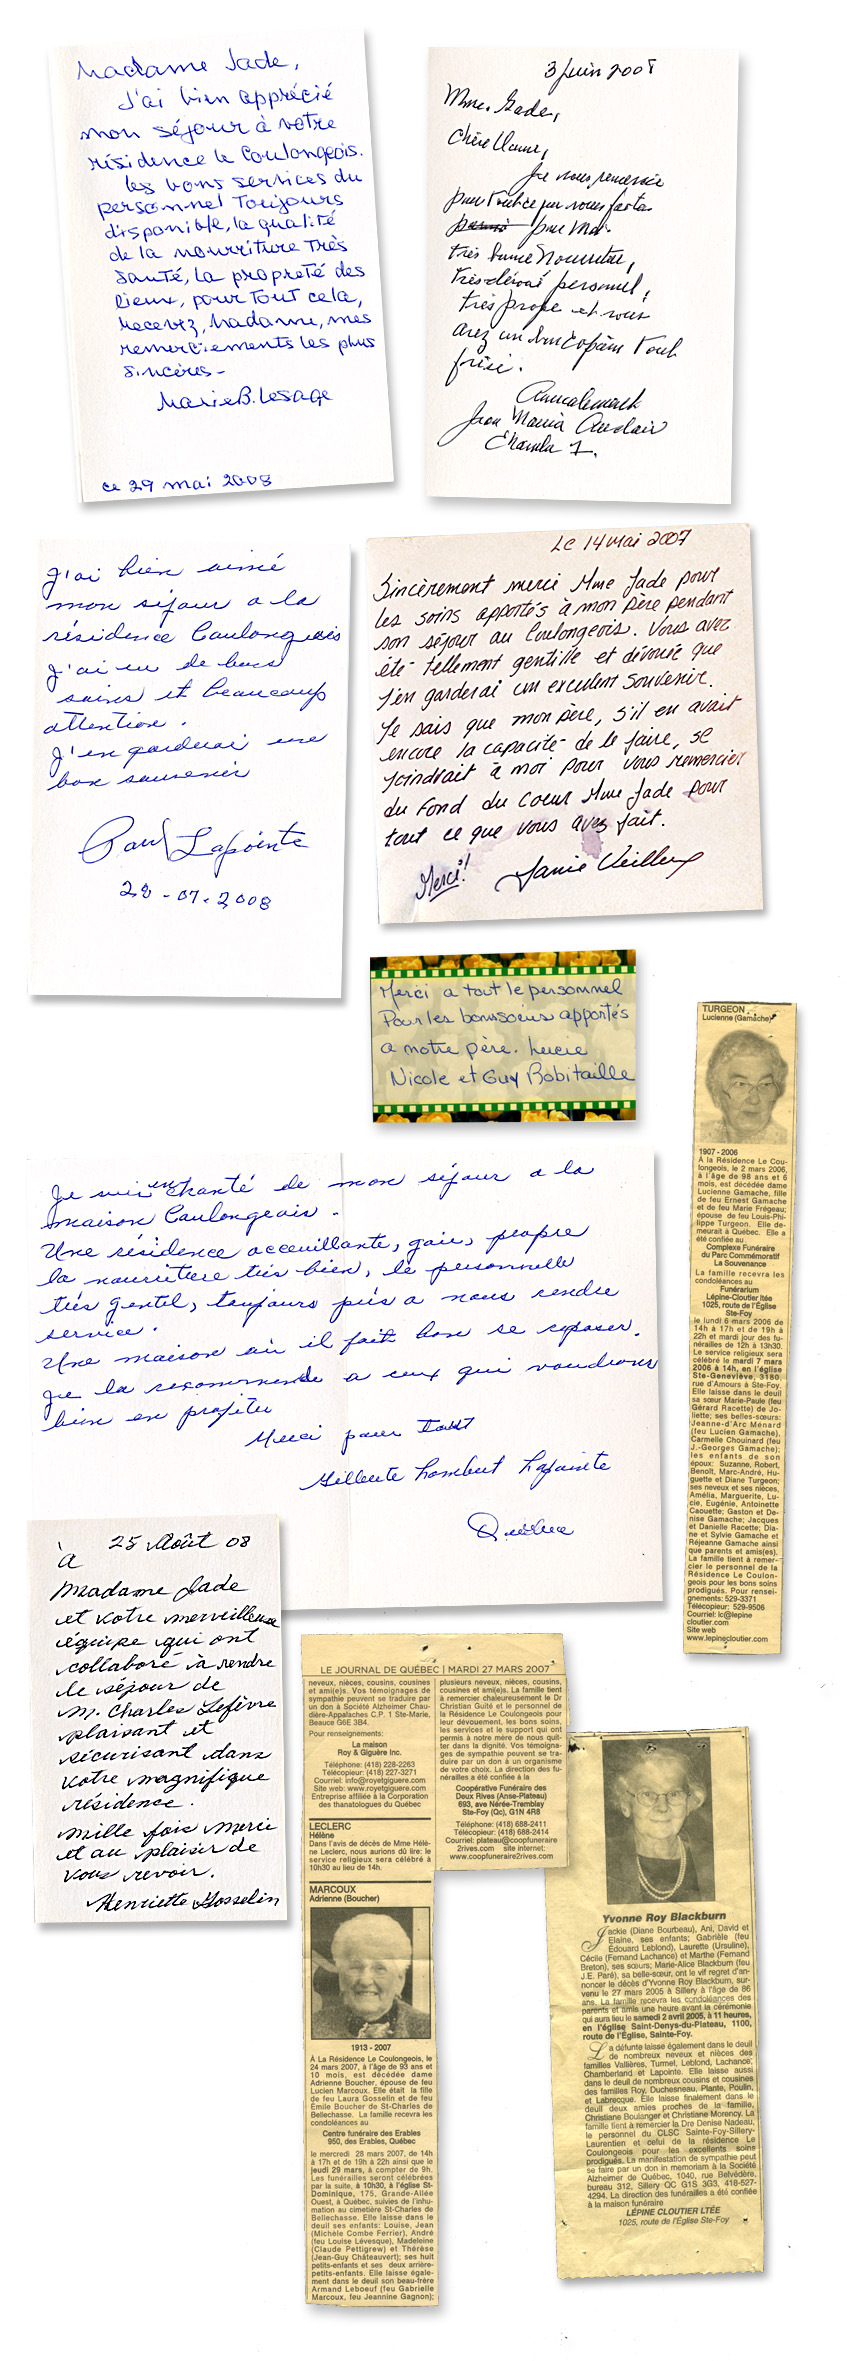 Madame Jade,
J'ai bien apprécié
mon séjour à votre
résidence le Coulongeois.
Les bons services du
personnel toujours
disponible, la qualité
de la nourriture très
santé, la propreté des
lieux, pour tout cela,
recevez, Madame, mes
remerciements les plus
sincères -
Marie B. Lesage
ce 29 mai 2008
3 Juin 2008
Mme. Jade,
Chère Dame,
Je vous remercie
pour tout ce que vous faites
pour moi
très bonne nourriture,
très dévoué personnel,
très propre et vous
avez un bon copain tout
frisé.
Jean Marie Auclair
Chambre 7.
J'ai bien aimé
mon séjour a la
résidence Coulongeois
J'ai eu de bons
soins et beaucoup
attention.
J'en garderai une
bon souvenir
Paul Lapointe
28-07-2008
Le 14 Mai 2007
Sincèrement merci Mme Jade pour
les soins apportés à mon père pendant
son séjour au Coulongeois. Vous avez
été tellement gentille et dévouée que
j'en garderai un excellent souvenir.
Je sais que mon père, s'il en avait
encore la capacité de le faire, se
joindrait à moi pour vous remercier
du fond du coeur Mme Jade pour
tout ce que vous avez fait.
Merci!
Veilleux
Merci a tout le personnel
Pour les bons soins apportés
a notre père. Lucie
Nicole et Guy Robitaille
TURGEON
Lucienne (Gamache)
1907 - 2006
À la Résidence Le Cou-
longeois, le 2 mars 2006,
à l'âge de 98 ans et 6
mois, est décédée dame
Lucienne Gamache, fille
de feu Ernest Gamache
et de feu Marie Frégeau;
épouse de feu Louis-Phi-
lippe Turgeon. Elle de-
meurait à Québec. Elle a
été confiée au
Complexe Funéraire
du Parc Commémoratif
La Souvenance
La famille recevra les
condoléances au
Funérarium
Lépine-Cloutier ltée
1025, route de l'Église
Ste-Foy
le lundi 6 mars 2006 de
14h à 17h et de 19h à
22h et mardi jour des fu-
nérailles de 12h à 13h30.
Le service religieux sera
célébré le mardi 7 mars
2006 à 14h, en l'église
Ste-Geneviève, 3180,
rue d'Amours à Ste-Foy.
Elle laisse dans le deuil
sa sœur Marie-Paule (feu
Gérard Racette) de Jo-
liette; ses belles-sœurs:
Jeanne-d'Arc Ménard
(feu Lucien Gamache),
Carmelle Chouinard (feu
J.-Georges Gamache);
les enfants de son
époux: Suzanne, Robert,
Benoît, Marc-André, Hu-
guette et Diane Turgeon;
ses neveux et ses nièces,
Amélia, Marguerite, Lu-
cie, Eugénie, Antoinette
Caouette; Gaston et De-
nise Gamache; Jacques
et Danielle Racette; Dia-
ne et Sylvie Gamache et
Réjeanne Gamache ainsi
que parents et amis(es).
La famille tient à remer-
cier le personnel de la
Résidence Le Coulon-
geois pour les bons soins
prodigués. Pour rensei-
gnements: 529-3371
Télécopieur: 529-9506
Courriel: lc@lepine
cloutier.com
Site web
www.lepinecloutier.com
Je suis enchanté de mon séjour a la
maison Coulongeais.
Une résidence acceuillante, gaie, propre
la nourriture très bien, le personnelle
très gentil, toujours près a nous rendre
service.
Une maison où il fait bon se reposer.
Je la recommende a ceux qui voudrons
bien en profiter
Merci pour tout
Lambert Lapointe
Québec
25 Août 08
À
Madame Jade
et votre merveilleuse
équipe qui ont
collaboré à rendre
le séjour de
M. Charles Lefèvre
plaisant et
sécurisant dans
votre magnifique
résidence.
Mille fois merci
et au plaisir de
vous revoir.
Henriette Gosselin
LE JOURNAL DE QUÉBEC | MARDI 27 MARS 2007
neveux, nièces, cousins, cousines
et ami(e)s. Vos témoignages de
sympathie peuvent se traduire par
un don à Société Alzheimer Chau-
dière-Appalaches C.P. 1 Ste-Marie,
Beauce G6E 3B4.
Pour renseignements:
La maison
Roy & Giguère Inc.
Téléphone: (418) 228-2263
Télécopieur: (418) 227-3271
Courriel: info@royetgiguere.com
Site web: www.royetgiguere.com
Entreprise affiliée à la Corporation
des thanatologues du Québec
LECLERC
Hélène
Dans l'avis de décès de Mme Hélè-
ne Leclerc, nous aurions dû lire: le
service religieux sera célébré à
10h30 au lieu de 14h.
MARCOUX
Adrienne (Boucher)
1913 - 2007
À La Résidence Le Coulongeois, le
24 mars 2007, à l'âge de 93 ans et
10 mois, est décédée dame
Adrienne Boucher, épouse de feu
Lucien Marcoux. Elle était la fille
de feu Laura Gosselin et de feu
Émile Boucher de St-Charles de
Bellechasse. La famille recevra les
condoléances au
Centre funéraire des Érables
950, des Érables, Québec
le mercredi 28 mars 2007, de 14h
à 17h et de 19h à 22h ainsi que le
jeudi 29 mars, à compter de 9h.
Les funérailles seront célébrées
par la suite, à 10h30, à l'église St-
Dominique, 175, Grande-Allée
Ouest, à Québec, suivies de l'inhu-
mation au cimetière St-Charles de
Bellechasse. Elle laisse dans le
deuil ses enfants: Louise, Jean
(Michèle Combe Ferrier), André
(feu Louise Lévesque), Madeleine
(Claude Pettigrew) et Thérèse
(Jean-Guy Châteauvert); ses huit
petits-enfants et ses deux arrière-
petits-enfants. Elle laisse égale-
ment dans le deuil son beau-frère
Armand Leboeuf (feu Gabrielle
Marcoux, feu Jeannine Gagnon);
plusieurs neveux, nièces, cousins,
cousines et ami(e)s. La famille tient
à remercier chaleureusement le Dr
Christian Guité et le personnel de
la Résidence Le Coulongeois pour
leur dévouement, les bons soins,
les services et le support qui ont
permis à notre mère de nous quit-
ter dans la dignité. Vos témoigna-
ges de sympathie peuvent se tra-
duire par un don à un organisme
de votre choix. La direction des fu-
nérailles a été confiée à la
Coopérative Funéraire des
Deux Rives (Anse-Plateau)
693, ave Nérée-Tremblay
Ste-Foy (Qc), G1N 4R8
Téléphone: (418) 688-2411
Télécopieur: (418) 688-2414
Courriel: plateau@coopfuneraire
2rives.com site internet:
www.coopfuneraire2rives.com
Yvonne Roy Blackburn
Jackie (Diane Bourbeau), Ani, David et
Elaine, ses enfants; Gabrièle (feu
Édouard Leblond), Laurette (Ursuline),
Cécile (Fernand Lachance) et Marthe (Fernand
Breton), ses sœurs; Marie-Alice Blackburn (feu
J.E. Paré), sa belle-sœur, ont le vif regret d'an-
noncer le décès d'Yvonne Roy Blackburn, sur-
venu le 27 mars 2005 à Sillery à l'âge de 86
ans. La famille recevra les condoléances des
parents et amis une heure avant la cérémonie
qui aura lieu le samedi 2 avril 2005, à 11 heures,
en l'église Saint-Denys-du-Plateau, 1100,
route de l'Église, Sainte-Foy.
La défunte laisse également dans le deuil
de nombreux neveux et nièces des
familles Vallières, Turmel, Leblond, Lachance,
Chamberland et Lapointe. Elle laisse aussi
dans le deuil de nombreux cousins et cousines
des familles Roy, Duchesneau, Plante, Poulin,
et Labrecque. Elle laisse finalement dans le
deuil deux amies proches de la famille,
Christiane Boulanger et Christiane Morency. La
famille tient à remercier la Dre Denise Nadeau,
le personnel du CLSC Sainte-Foy-Sillery-
Laurentien et celui de la résidence Le
Coulongeois pour les excellents soins
prodigués. La manifestation de sympathie peut
se faire par un don in memoriam à la Société
Alzheimer de Québec, 1040, rue Belvédère,
bureau 312, Sillery QC G1S 3G3, 418-527-
4294. La direction des funérailles a été confiée
à la maison funéraire
LÉPINE CLOUTIER LTÉE
1025, route de l'Église Ste-Foy